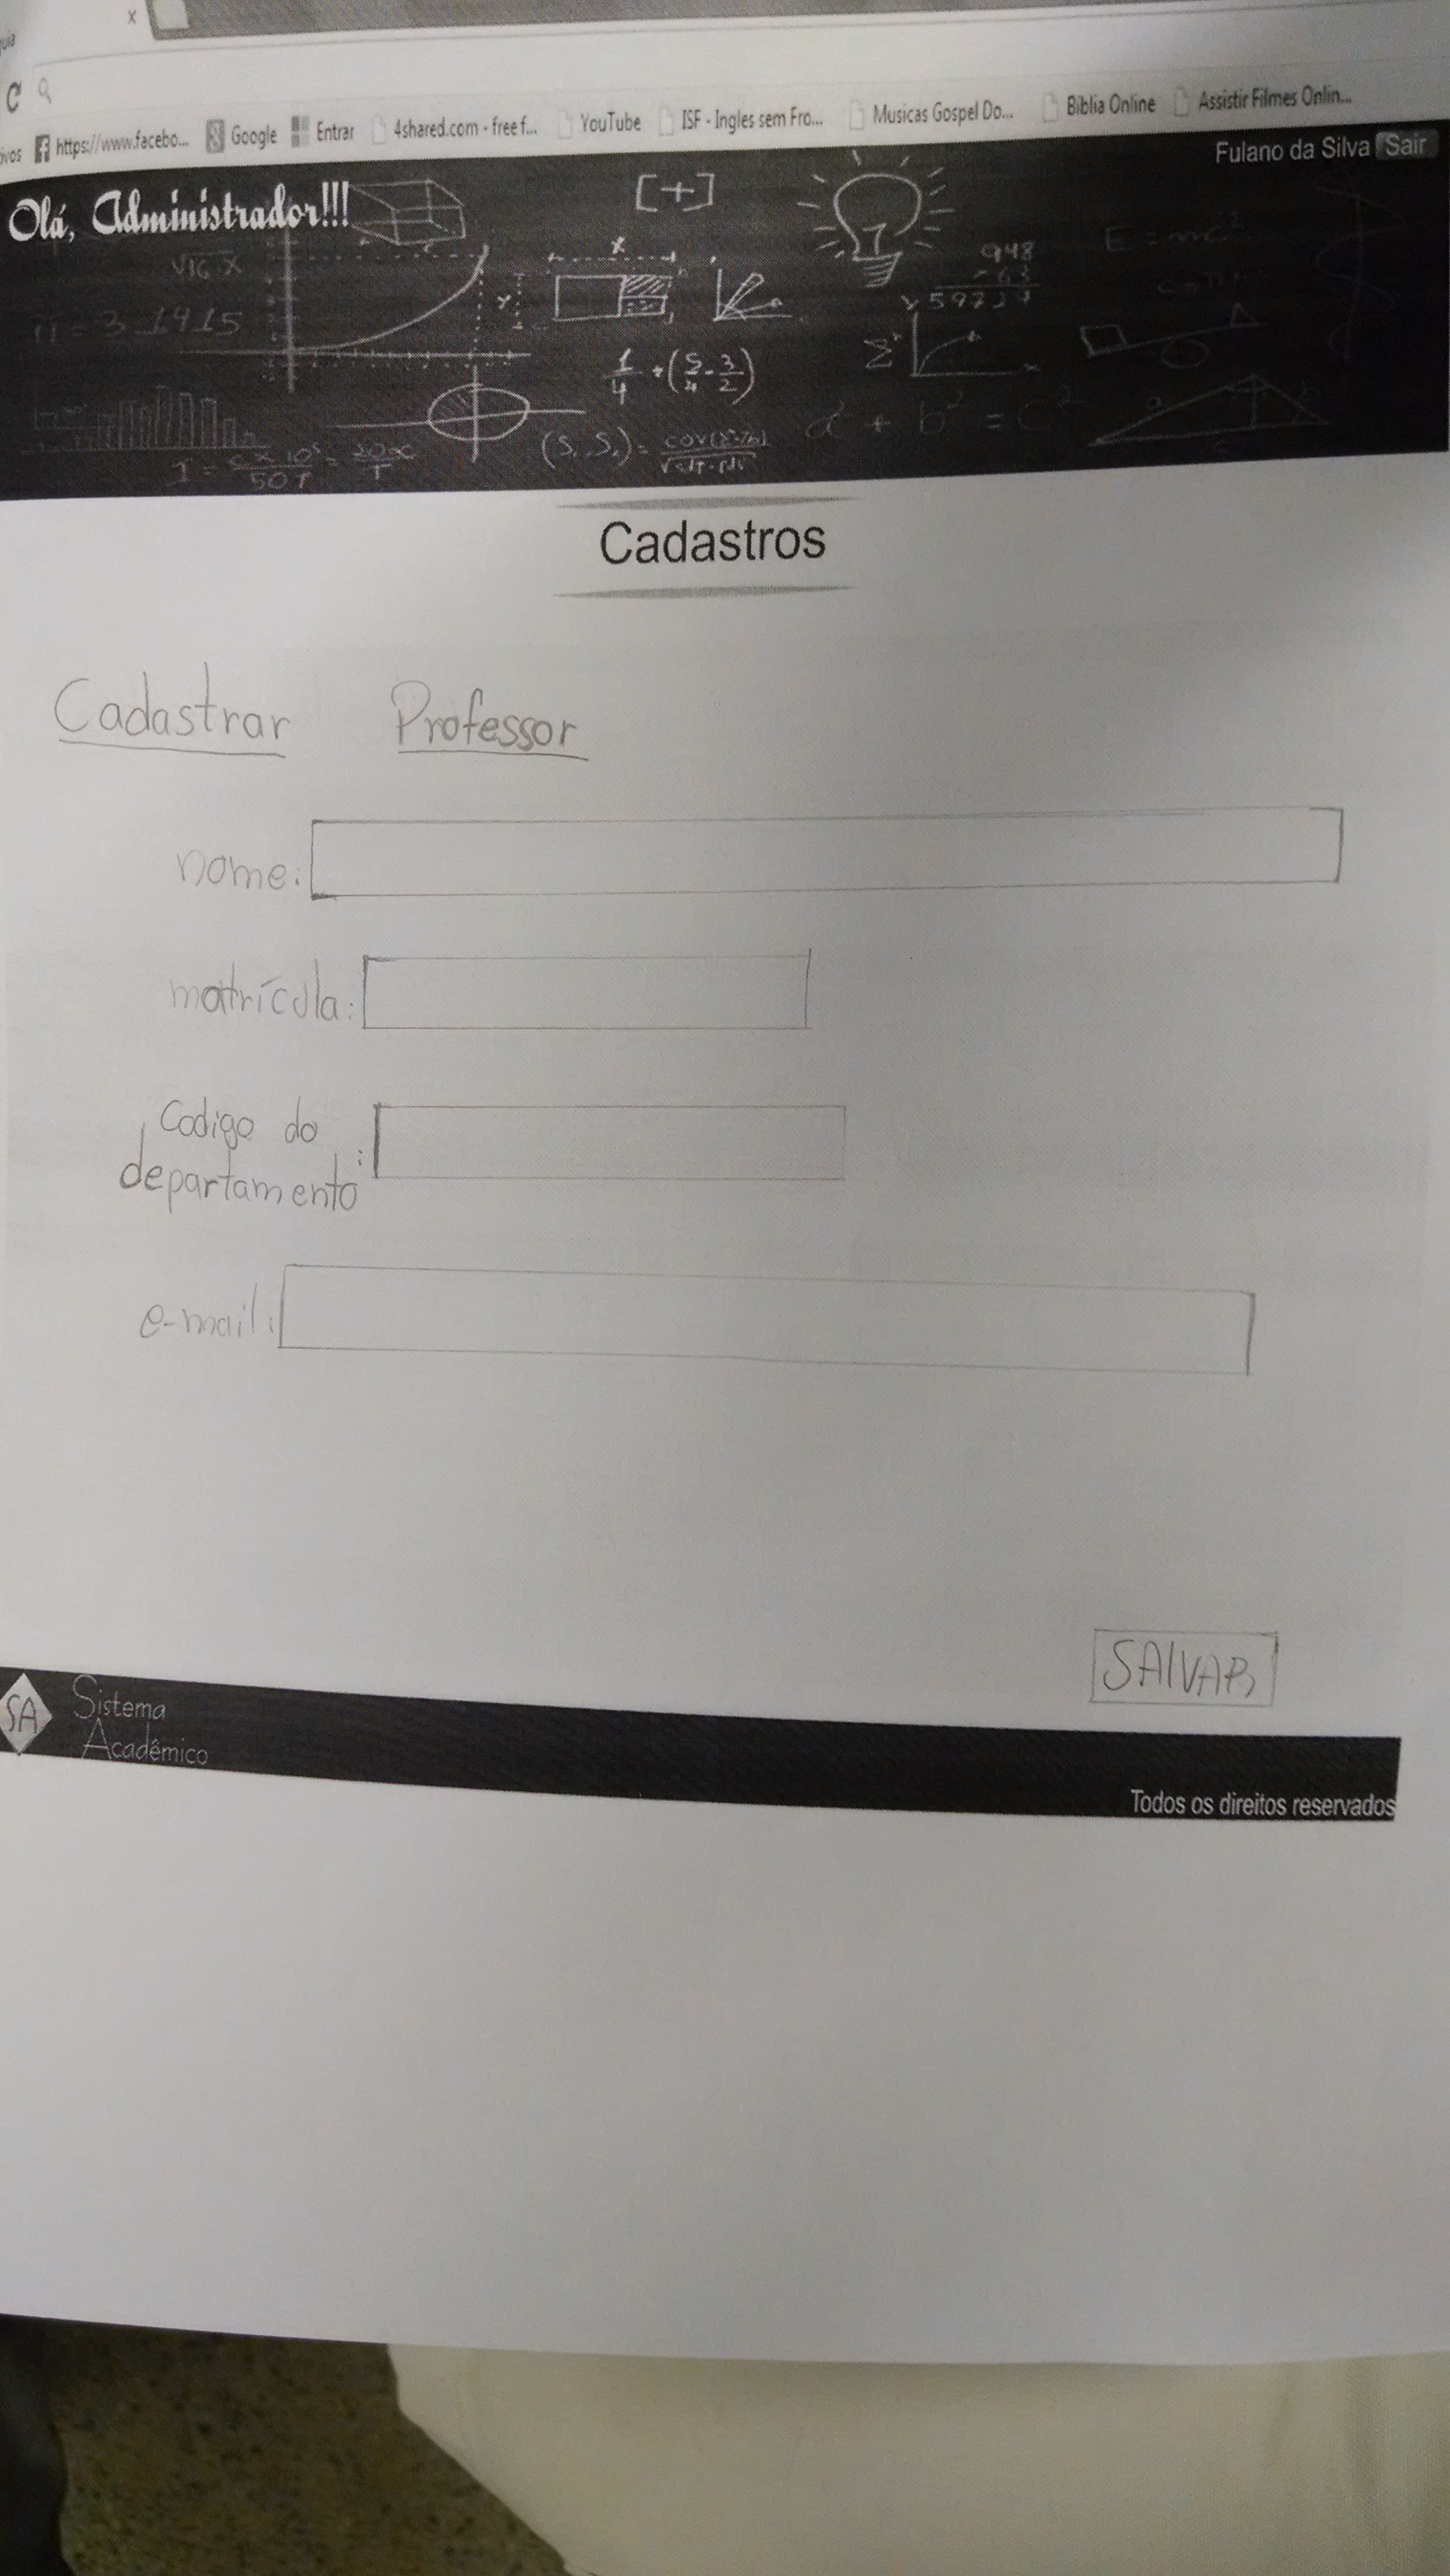 https://www.facebo... Google Entrar 4shared.com - free f... YouTube ISF - Ingles sem Fro... Musicas Gospel Do... Bíblia Online Assistir Filmes Onlin...
Fulano da Silva Sair
Olá, Administrador!!!
[+]
x
948
63
E = mc²
√16 x
π = 3.1415
1/4 + (5/4 - 3/2)
a² + b² = c²
Cadastros
Cadastrar Professor
nome:
matrícula:
Codigo do
departamento :
e-mail:
SALVAR
SA Sistema
Acadêmico
Todos os direitos reservados